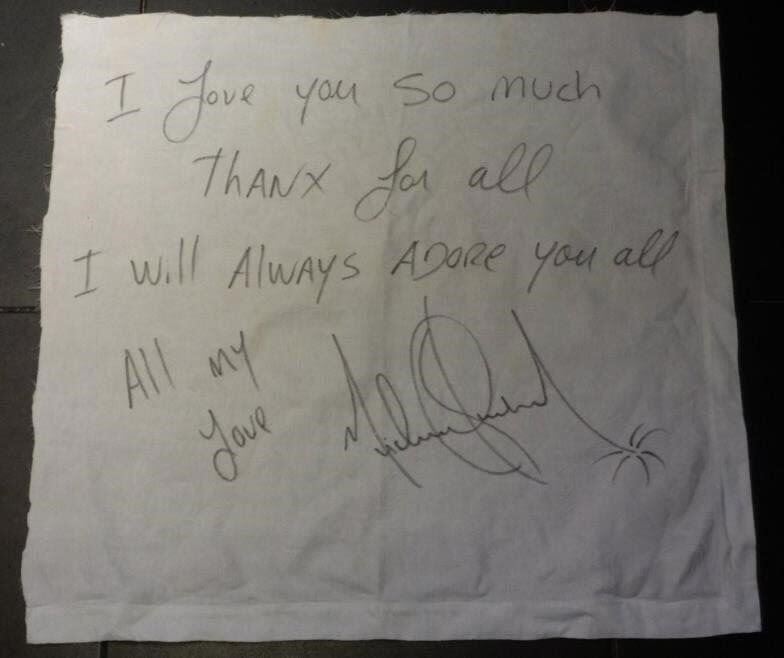 I love you so much
THANX for all
I will ALWAYS ADORE you all
All MY
Love
Michael Jackson